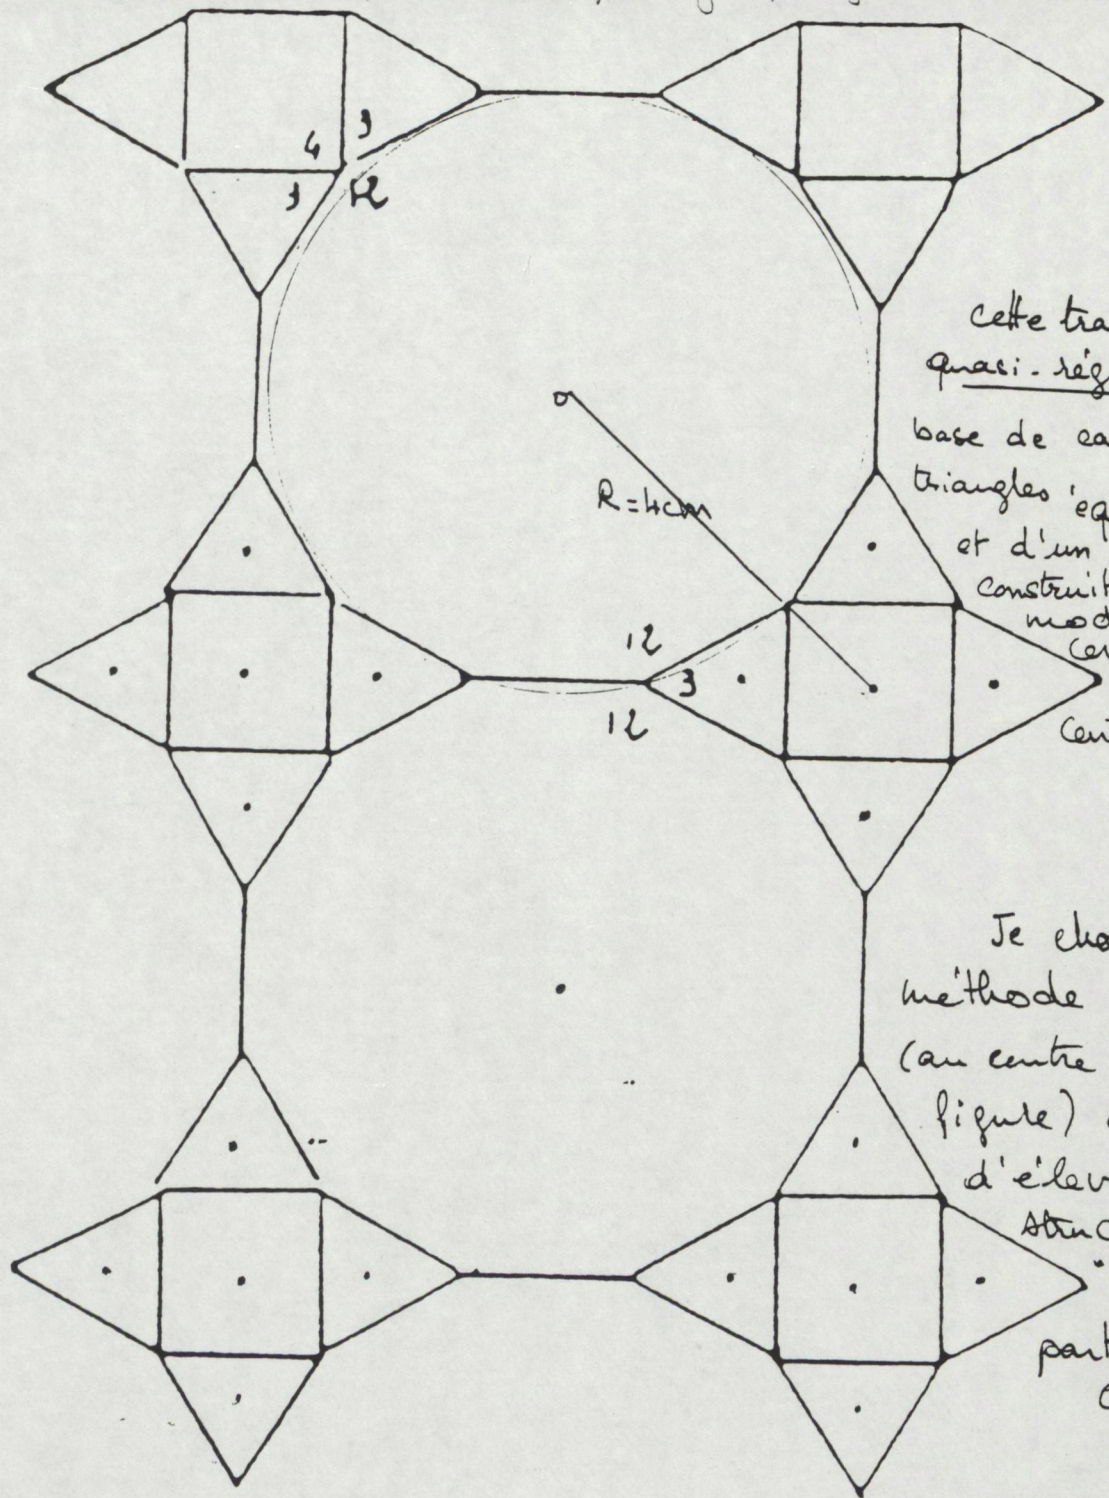 4
3
3
12
cette tra
quasi-rég
base de ca
triangles éq
et d'un
construit
mod
Cen
R=4cm
12
3
12
Cen
Je cho
méthode
(au centre
figure)
d'élev
struc
part